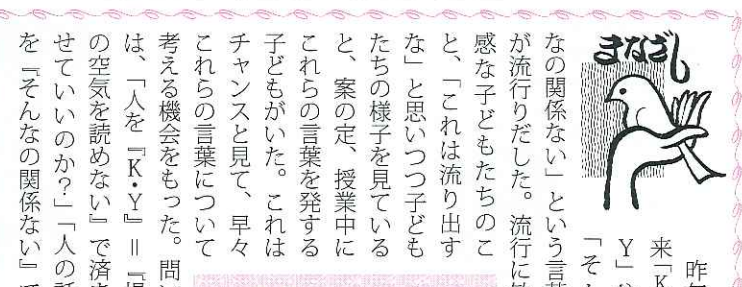 まなざし
昨年
来「K
Y」
「そん
なの関係ない」という言葉
が流行りだした。流行に敏
感な子どもたちのこ
と、「これは流り出す
な」と思いつつ子ども
たちの様子を見ている
と、案の定、授業中に
これらの言葉を発する
子どもがいた。これは
チャンスと見て、早々
これらの言葉について
考える機会をもった。問い
は、「人を『K・Y』＝『場
の空気を読めない』で済ま
せていいのか？」「人の話
を『そんなの関係ない』で